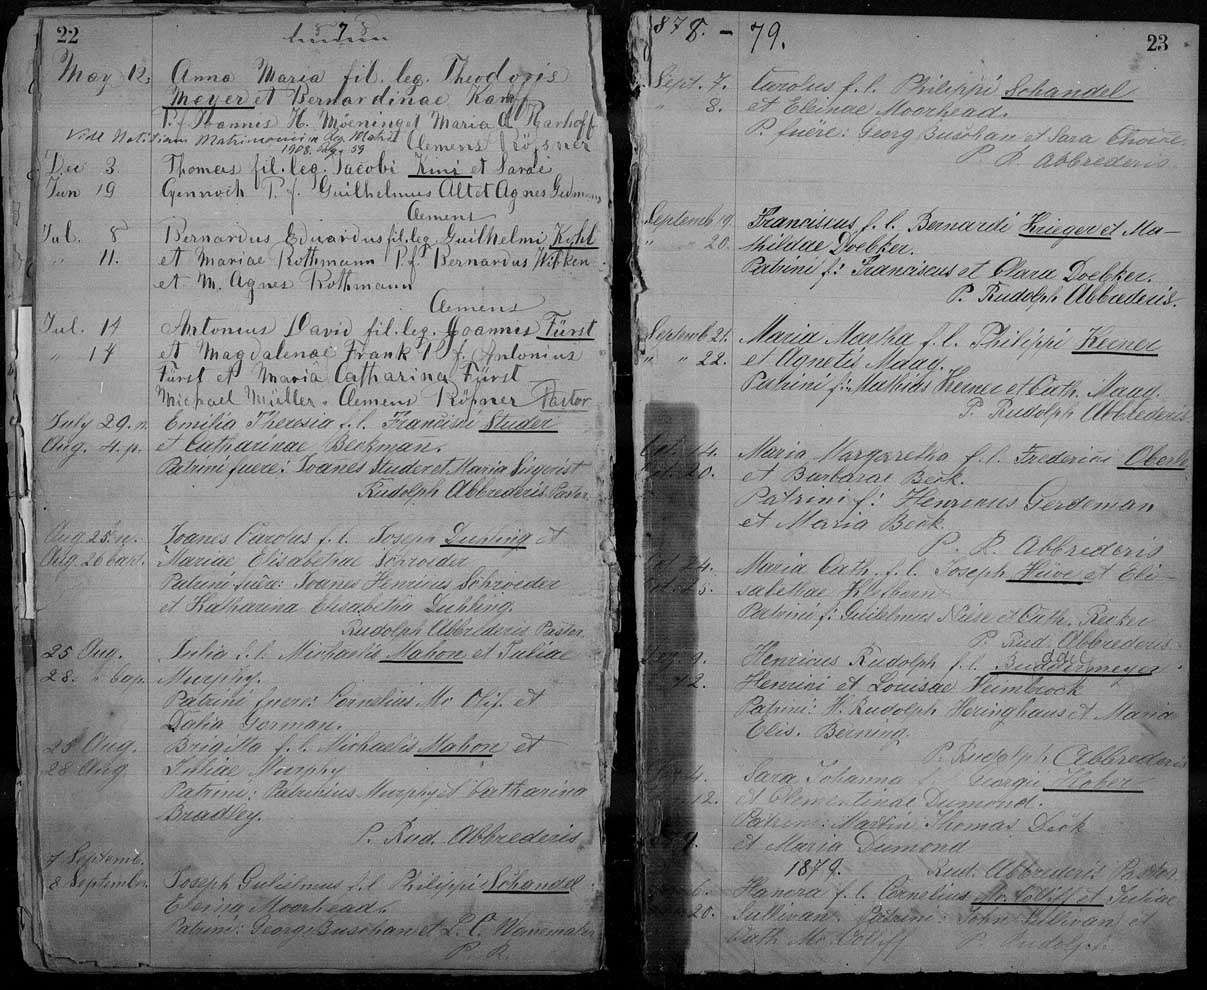 22
1878
May 12.
Anna Maria fil. leg. Theodoris
Meyer et Bernardinae Kamp
P. f. Joannes H. Moening et Maria A. Barhoff
Vide Notitiam Matrimonium Reg. Matri
1908. pag. 59
Clemens Röpsner
Dec 3
Thomas fil. leg. Jacobi Kini et Sarae
Jun 19
P. f. Guilhelmus Alt et Agnes
Clemens
Jul. 8
Bernardus Eduardus fil. leg. Guilhelmi Kyhl
" 11.
et Mariae Rothmann P. f. Bernardus Wibken
et M. Agnes Rothmann
Clemens
Jul. 14
Antonius David fil. leg. Joannes Fürst
" 14
et Magdalenae Frank P. f. Antonius
Fürst et Maria Catharina Fürst
Michael Müller. Clemens Röpsner Pastor
July 29. n.
Emilia Theresia f. l. Francisci Studer
Aug. 4. p.
et Catharinae Beckman.
Patrini fuere: Joanes Studer et Maria
Rudolph Abbrederis Pastor
Aug 25. n.
Joanes Carolus f. l. Joseph Luhling et
Aug. 26 bapt.
Mariae Elisabethae Schroeder
Patrini fuere: Joanes Henricus Schroeder
et Katharina Elisabetha Luhling.
Rudolph Abbrederis Pastor.
25 Aug.
Julia f. l. Michaelis Mahon et Juliae
28. " bap.
Murphy.
Patrini fuere: Cornelius Mc Olif. et
Dalia Gorman.
25 Aug.
Brigitta f. l. Michaelis Mahon et
28 Aug.
Juliae Murphy
Patrini: Patricius Murphy et Catharina
Bradley.
P. Rud. Abbrederis
7 Septemb.
8 September.
Joseph Gulielmus f. l. Philippi Schandel
Eleina Moorhead.
Patrini: Georg Buschan et L. C. Wanemaker
P. R.
1878. - 79.
23
Sept. 7.
Carolus f. l. Philippi Schandel
" 8.
et Eleinae Moorhead.
P. fuere: Georg Buschan et Sara
P. R. Abbrederis
Septemb 19.
Franciscus f. l. Bernardi Krieger et Ma-
" " 20.
thildae Doebker.
Patrini f: Franciscus et Clara Doebker.
P. Rudolph Abbrederis.
Septemb 21.
Maria Martha f. l. Philippi Keener
" " 22.
et Agnetis Maag.
Patrini f: Mathias Keener et Cath. Maag.
P. Rudolph Abbrederis
Oct. 14.
Maria Margaretha f. l. Frederici
Oct. 20.
et Barbarae Beck.
Patrini f: Henricus Gerdeman
et Maria Beck
P. R. Abbrederis
Oct. 24.
Maria Cath. f. l. Joseph Hüve et Eli-
Oct. 25.
sabethae
Patrini f: Gulielmus Niese et Cath. Recker
P. Rud. Abbrederis.
9.
Henricus Rudolph f. l. Buddermeyer
12.
Henrici et Louisae Heimbrock
Patrini: H. Rudolph Heringhaus et Maria
Elis. Berning.
P. Rudolph Abbrederis
4.
Sara Johanna f. l. Georgii Hober
12.
et Clementinae Dumond.
Patrini: Martin Thomas Dick
et Maria Dumond
1879.
Rud. Abbrederis Pastor
6.
Hanora f. l. Cornelius Mc Colliff et Juliae
20.
Sullivan. Patrini: John Sullivan et
Cath Mc Coliff P. Rudolph